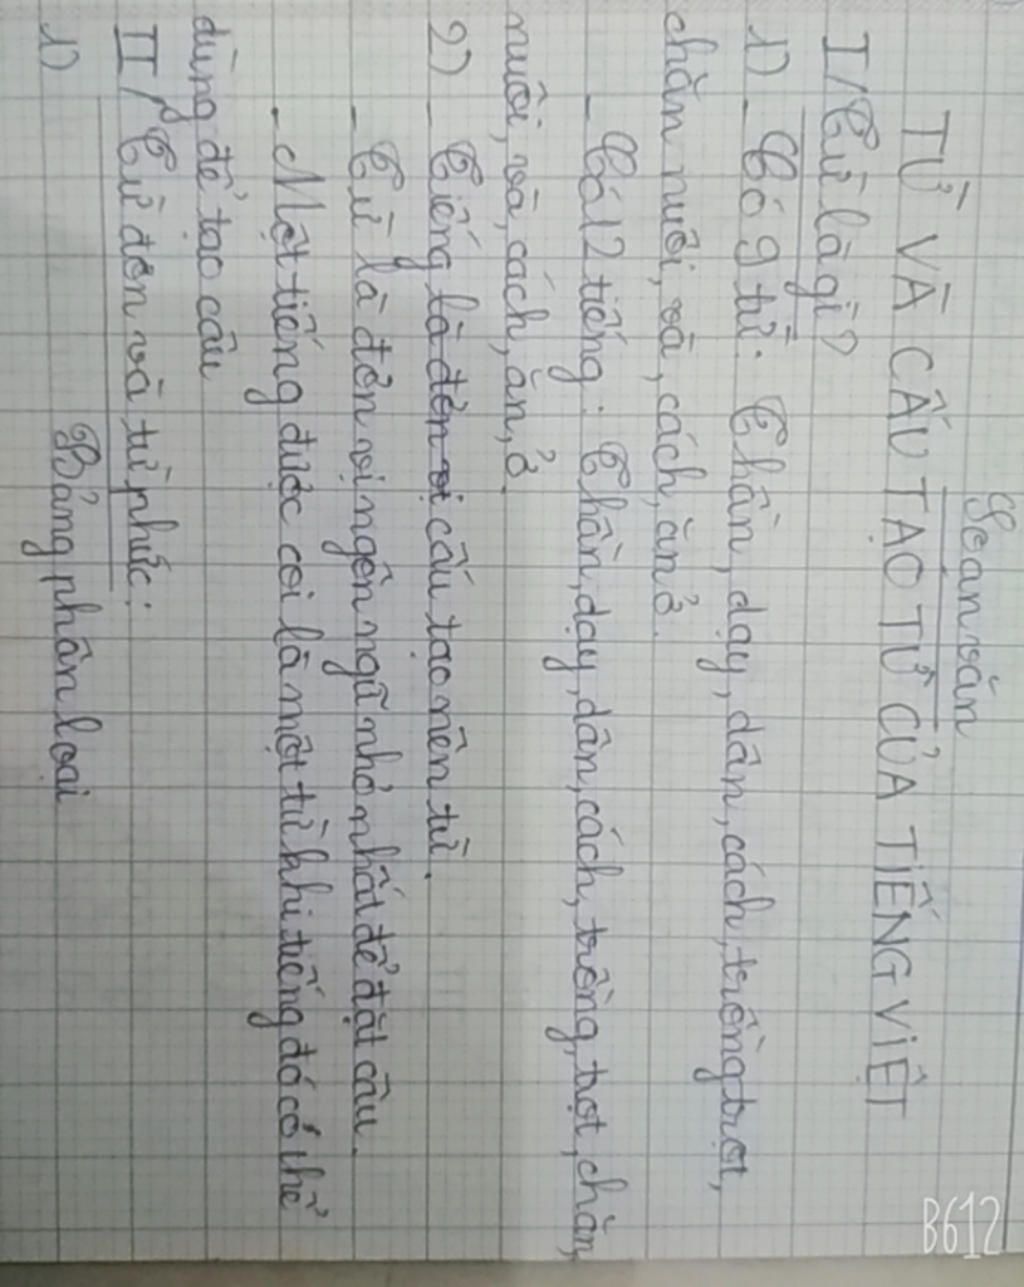 Soạn văn
TỪ VÀ CẤU TẠO TỪ CỦA TIẾNG VIỆT
I/ Từ là gì?
1) - Có 9 từ: Thần, dạy, dân, cách, trồng trọt,
chăn nuôi, và, cách, ăn ở.
- Có 12 tiếng: Thần, dạy, dân, cách, trồng, trọt, chăn,
nuôi, và, cách, ăn, ở.
2) - Tiếng là đơn vị cấu tạo nên từ.
- Từ là đơn vị ngôn ngữ nhỏ nhất để đặt câu.
- Một tiếng được coi là một từ khi tiếng đó có thể
dùng để tạo câu
II/ Từ đơn và từ phức:
1) Bảng phân loại
B612